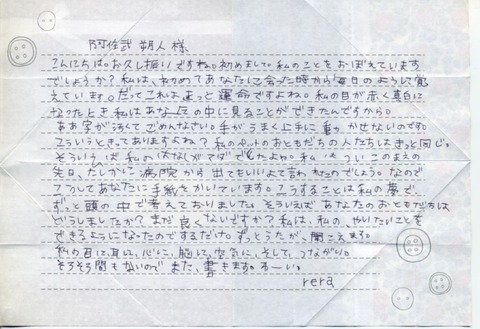 阿佐武 朔人 様
こんにちは。お久し振りですね。初めまして。私のことをおぼえています
でしょうか？私は、初めてあなたに会った時から毎日のように覚
えています。だってこれはきっと運命ですよね。私の目が赤く真白に
なったとき私はあな の中に見ることができたんですから。
ああ字がうろくてごめんなさい。手がうまく上手に動 かせないのです。
こういうときってありますよね？私の のおともだちの人たちはきっと同じ。
そういうば 私の はなしがマダでしたよね。私 、ついこのまえの
先日、たしかに病院から出てもいいよて言われたのでしょう。なので
こうしてあなたに手紙をかいています。こうすることは私の夢で、
ずっと頭の中で考えておりました。そういえばあなたのおともだちは
どうしましたか？まだ良くないですか？私は、私の、やりたいことを
できるようになったのでするだけ。ずっとうたが、聞こえます。
私の目に、耳に、心に、脳に、空気に、そして、つながり。
そろそろ間もないので また、書きます。
rera